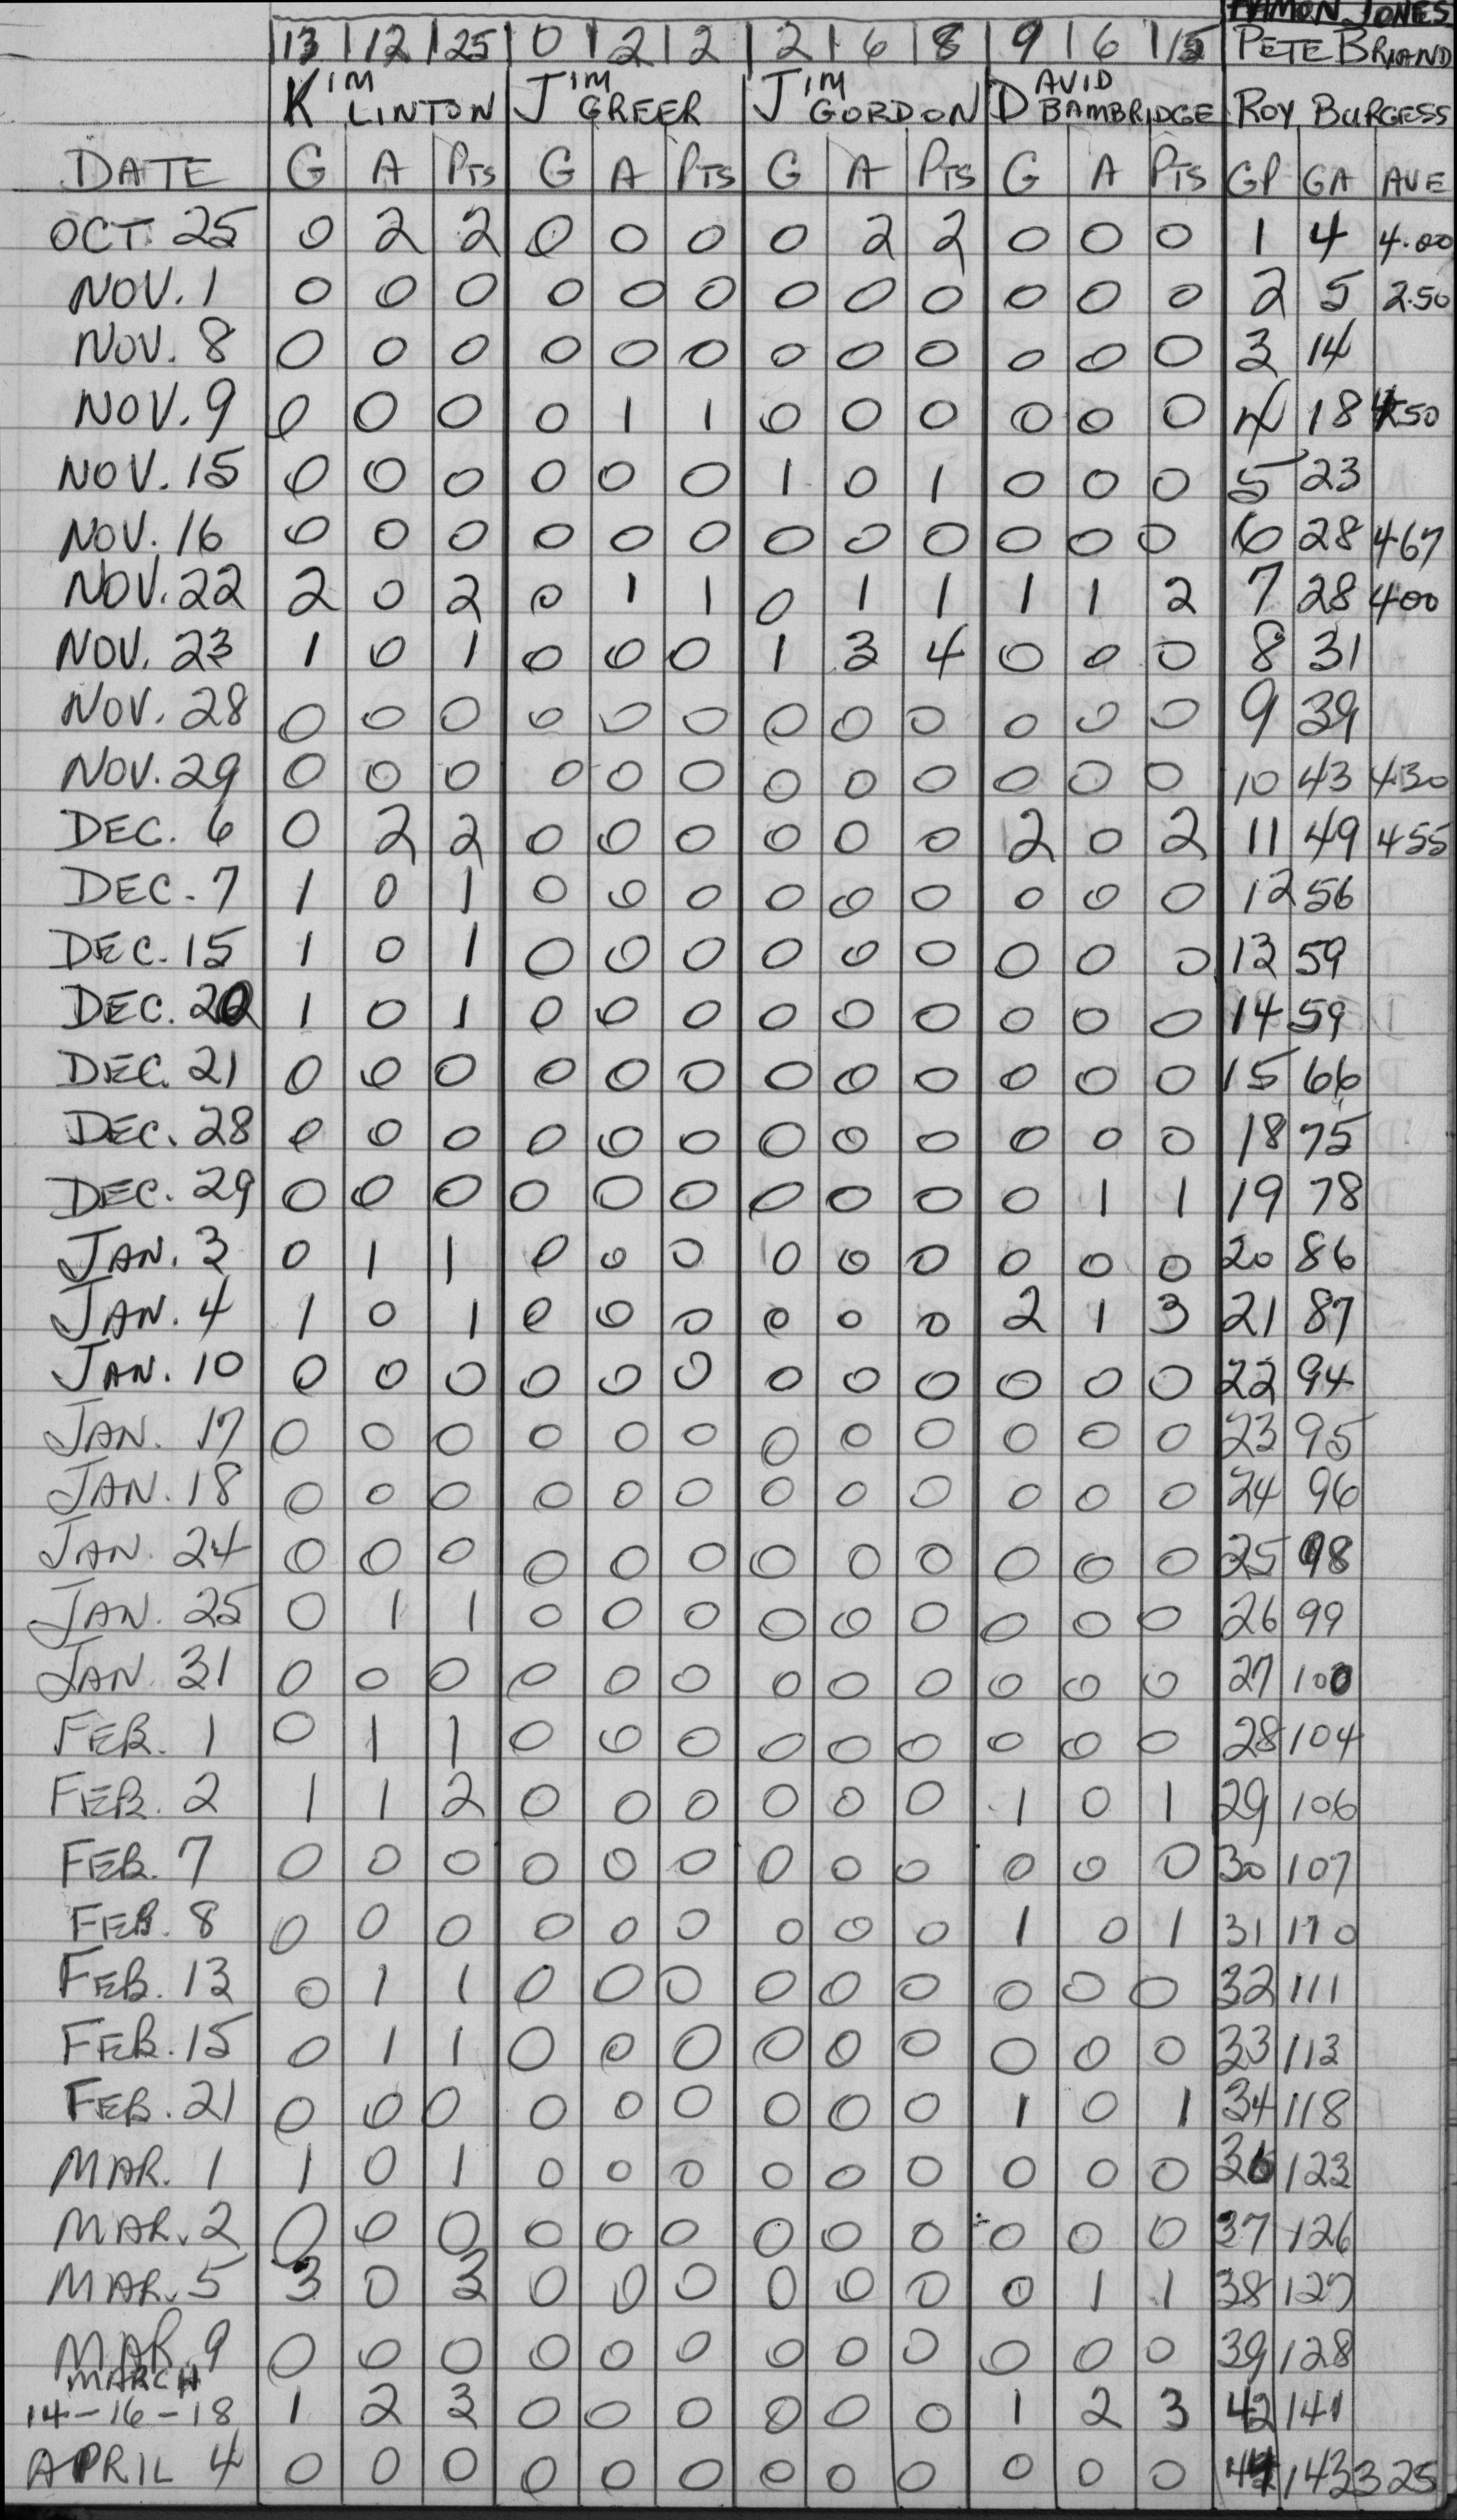 RAMON JONES
13 12 25 0 2 2 2 6 8 9 6 15 PETE BRIAND
KIM LINTON JIM GREER JIM GORDON DAVID BAMBRIDGE ROY BURGESS
DATE G A PTS G A PTS G A PTS G A PTS GP GA AVE
OCT. 25 0 2 2 0 0 0 0 2 2 0 0 0 1 4 4.00
NOV. 1 0 0 0 0 0 0 0 0 0 0 0 0 2 5 2.50
NOV. 8 0 0 0 0 0 0 0 0 0 0 0 0 3 14
NOV. 9 0 0 0 0 1 1 0 0 0 0 0 0 4 18 450
NOV. 15 0 0 0 0 0 0 1 0 1 0 0 0 5 23
NOV. 16 0 0 0 0 0 0 0 0 0 0 0 0 6 28 467
NOV. 22 2 0 2 0 1 1 0 1 1 1 1 2 7 28 400
NOV. 23 1 0 1 0 0 0 1 3 4 0 0 0 8 31
NOV. 28 0 0 0 0 0 0 0 0 0 0 0 0 9 39
NOV. 29 0 0 0 0 0 0 0 0 0 0 0 0 10 43 430
DEC. 6 0 2 2 0 0 0 0 0 0 2 0 2 11 49 455
DEC. 7 1 0 1 0 0 0 0 0 0 0 0 0 12 56
DEC. 15 1 0 1 0 0 0 0 0 0 0 0 0 13 59
DEC. 20 1 0 1 0 0 0 0 0 0 0 0 0 14 59
DEC. 21 0 0 0 0 0 0 0 0 0 0 0 0 15 66
DEC. 28 0 0 0 0 0 0 0 0 0 0 0 0 18 75
DEC. 29 0 0 0 0 0 0 0 0 0 0 1 1 19 78
JAN. 3 0 1 1 0 0 0 0 0 0 0 0 0 20 86
JAN. 4 1 0 1 0 0 0 0 0 0 2 1 3 21 87
JAN. 10 0 0 0 0 0 0 0 0 0 0 0 0 22 94
JAN. 17 0 0 0 0 0 0 0 0 0 0 0 0 23 95
JAN. 18 0 0 0 0 0 0 0 0 0 0 0 0 24 96
JAN. 24 0 0 0 0 0 0 0 0 0 0 0 0 25 98
JAN. 25 0 1 1 0 0 0 0 0 0 0 0 0 26 99
JAN. 31 0 0 0 0 0 0 0 0 0 0 0 0 27 100
FEB. 1 0 1 1 0 0 0 0 0 0 0 0 0 28 104
FEB. 2 1 1 2 0 0 0 0 0 0 1 0 1 29 106
FEB. 7 0 0 0 0 0 0 0 0 0 0 0 0 30 107
FEB. 8 0 0 0 0 0 0 0 0 0 1 0 1 31 110
FEB. 13 0 1 1 0 0 0 0 0 0 0 0 0 32 111
FEB. 15 0 1 1 0 0 0 0 0 0 0 0 0 33 113
FEB. 21 0 0 0 0 0 0 0 0 0 1 0 1 34 118
MAR. 1 1 0 1 0 0 0 0 0 0 0 0 0 36 123
MAR. 2 0 0 0 0 0 0 0 0 0 0 0 0 37 126
MAR. 5 3 0 3 0 0 0 0 0 0 0 1 1 38 127
MAR. 9 0 0 0 0 0 0 0 0 0 0 0 0 39 128
MARCH
14-16-18 1 2 3 0 0 0 0 0 0 1 2 3 42 141
APRIL 4 0 0 0 0 0 0 0 0 0 0 0 0 44 143 325